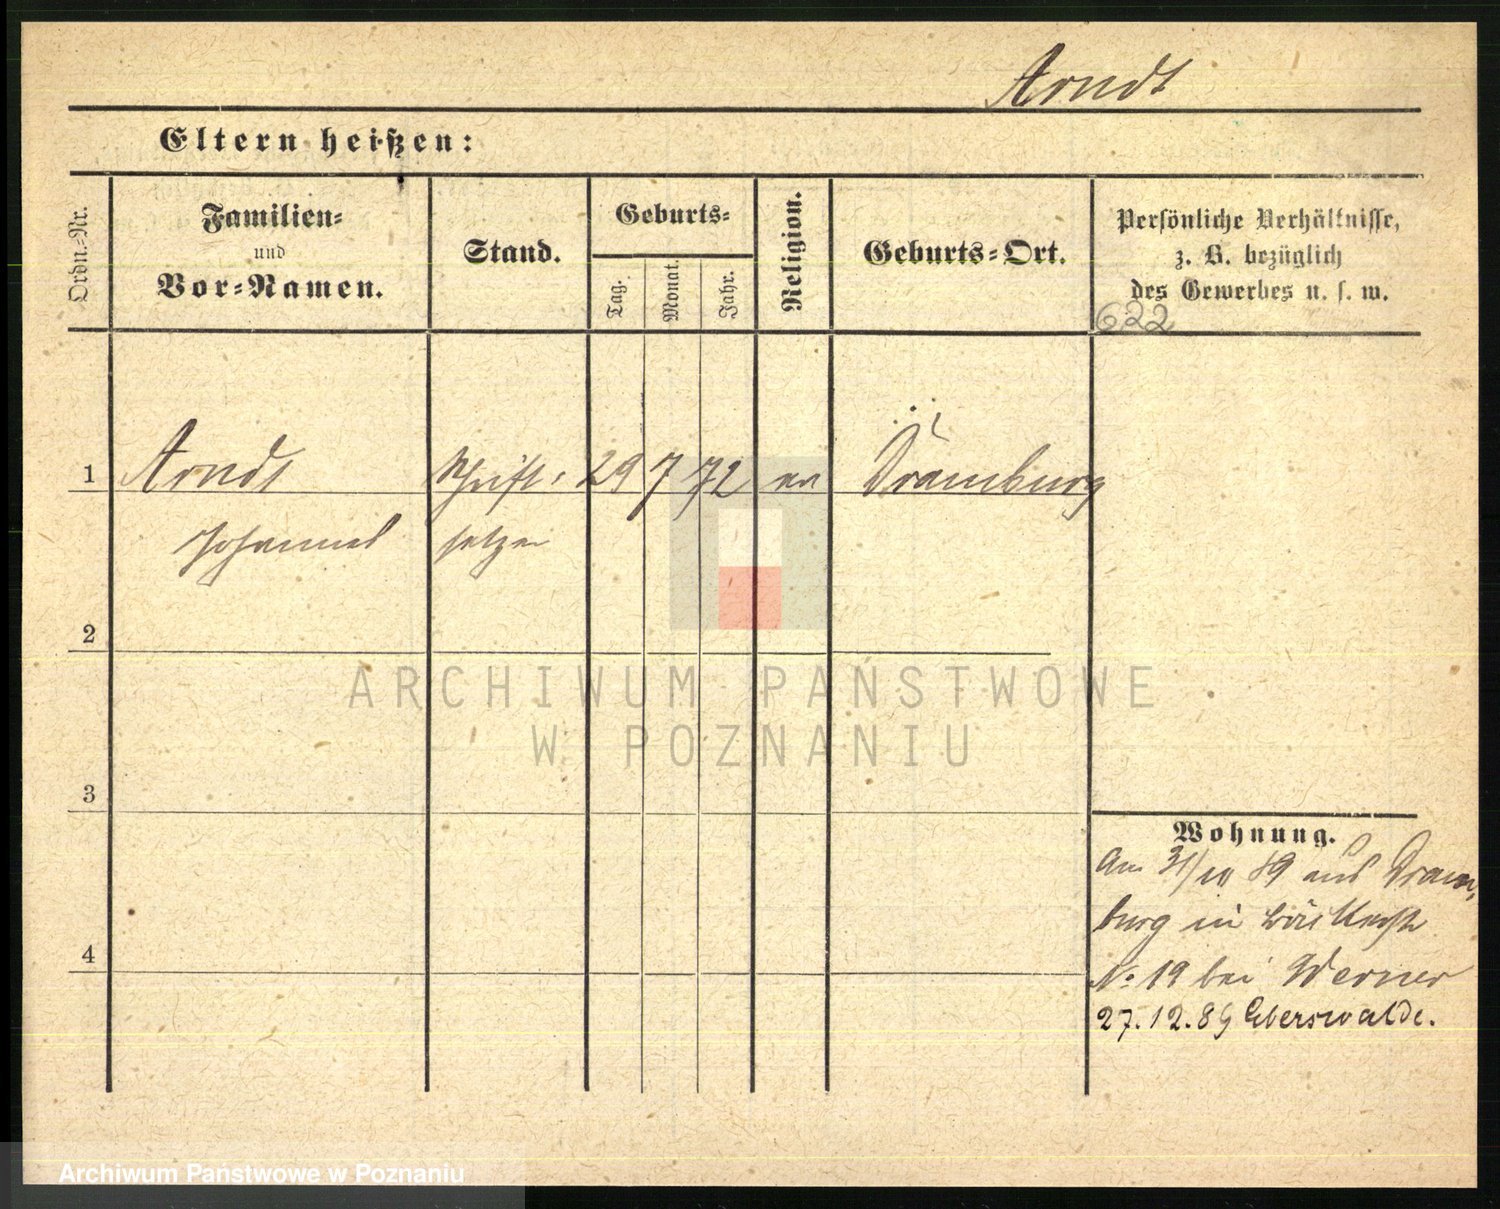 Arndt
Eltern heißen:
Ordn.-Nr.
Familien-
und
Vor-Namen.
Stand.
Geburts-
Tag.
Monat.
Jahr.
Religion.
Geburts-Ort.
Persönliche Verhältnisse,
z. B. bezüglich
des Gewerbes u. s. w.
622
1 Arndt Schrift- 29 7 72 ev Dramburg
Johannes setzer
2
3
4
Wohnung.
Am 31/10 89 aus Dram-
burg in
No 19 bei Werner
27.12.89 Eberswalde.
ARCHIWUM PAŃSTWOWE
W POZNANIU
Archiwum Państwowe w Poznaniu